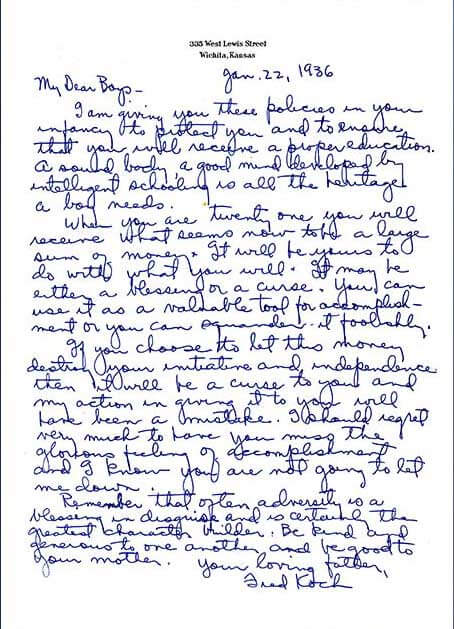 335 West Lewis Street
Wichita, Kansas
Jan. 22, 1936
My Dear Boys -
I am giving you these policies in your
infancy to protect you and to ensure
that you will receive a proper education.
A sound body, a good mind developed by
intelligent schooling is all the heritage
a boy needs.
When you are twenty one you will
receive what seems now to be a large
sum of money. It will be yours to
do with what you will. It may be
either a blessing or a curse. You can
use it as a valuable tool for accomplish-
ment or you can squander it foolishly.
If you choose to let this money
destroy your initiative and independence
then it will be a curse to you and
my action in giving it to you will
have been a mistake. I should regret
very much to have you miss the
glorious feeling of accomplishment
and I know you are not going to let
me down.
Remember that often adversity is a
blessing in disguise and is certainly the
greatest character builder. Be kind and
generous to one another and be good to
your mother. Your loving father,
Fred Koch